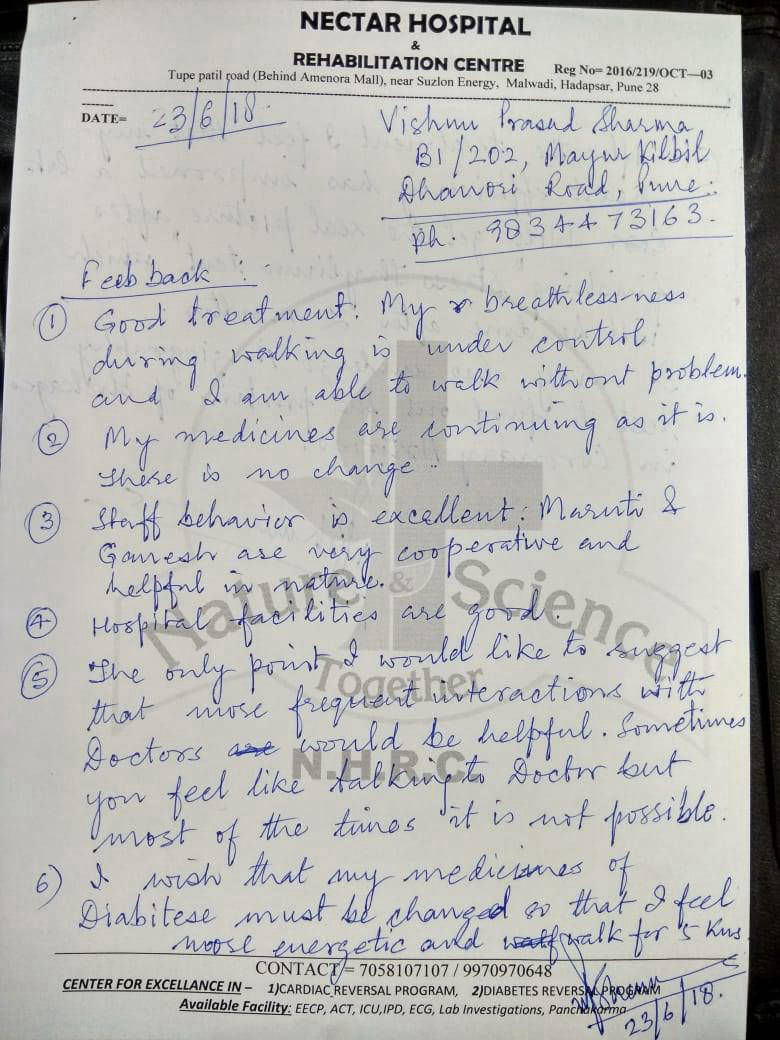 NECTAR HOSPITAL
&
REHABILITATION CENTRE
Reg No= 2016/219/OCT—03
Tupe patil road (Behind Amenora Mall), near Suzlon Energy, Malwadi, Hadapsar, Pune 28
DATE= 23/6/18.
Vishnu Prasad Sharma
B1/202, Mayur Kilbil
Dhanori Road, Pune.
Ph. 9834473163.
Feeb back :
① Good treatment. My breathless-ness
during walking is under control
and I am able to walk without problem.
② My medicines are continuing as it is.
There is no change.
③ Staff behavior is excellent: Maruti &
Ganesh are very cooperative and
helpful in nature.
④ Hospital facilities are good.
⑤ The only point I would like to suggest
that more frequent interactions with
Doctors would be helpful. Sometimes
you feel like talking to Doctor but
most of the times it is not possible.
6) I wish that my medicines of
Diabitese must be changed so that I feel
more energetic and walk for 5 Kms
Nature & Science
Together
N.H.R.C.
CONTACT= 7058107107 / 9970970648
CENTER FOR EXCELLENCE IN – 1)CARDIAC REVERSAL PROGRAM, 2)DIABETES REVERSAL PROGRAM
Available Facility: EECP, ACT, ICU,IPD, ECG, Lab Investigations, Panchakarma
23/6/18.